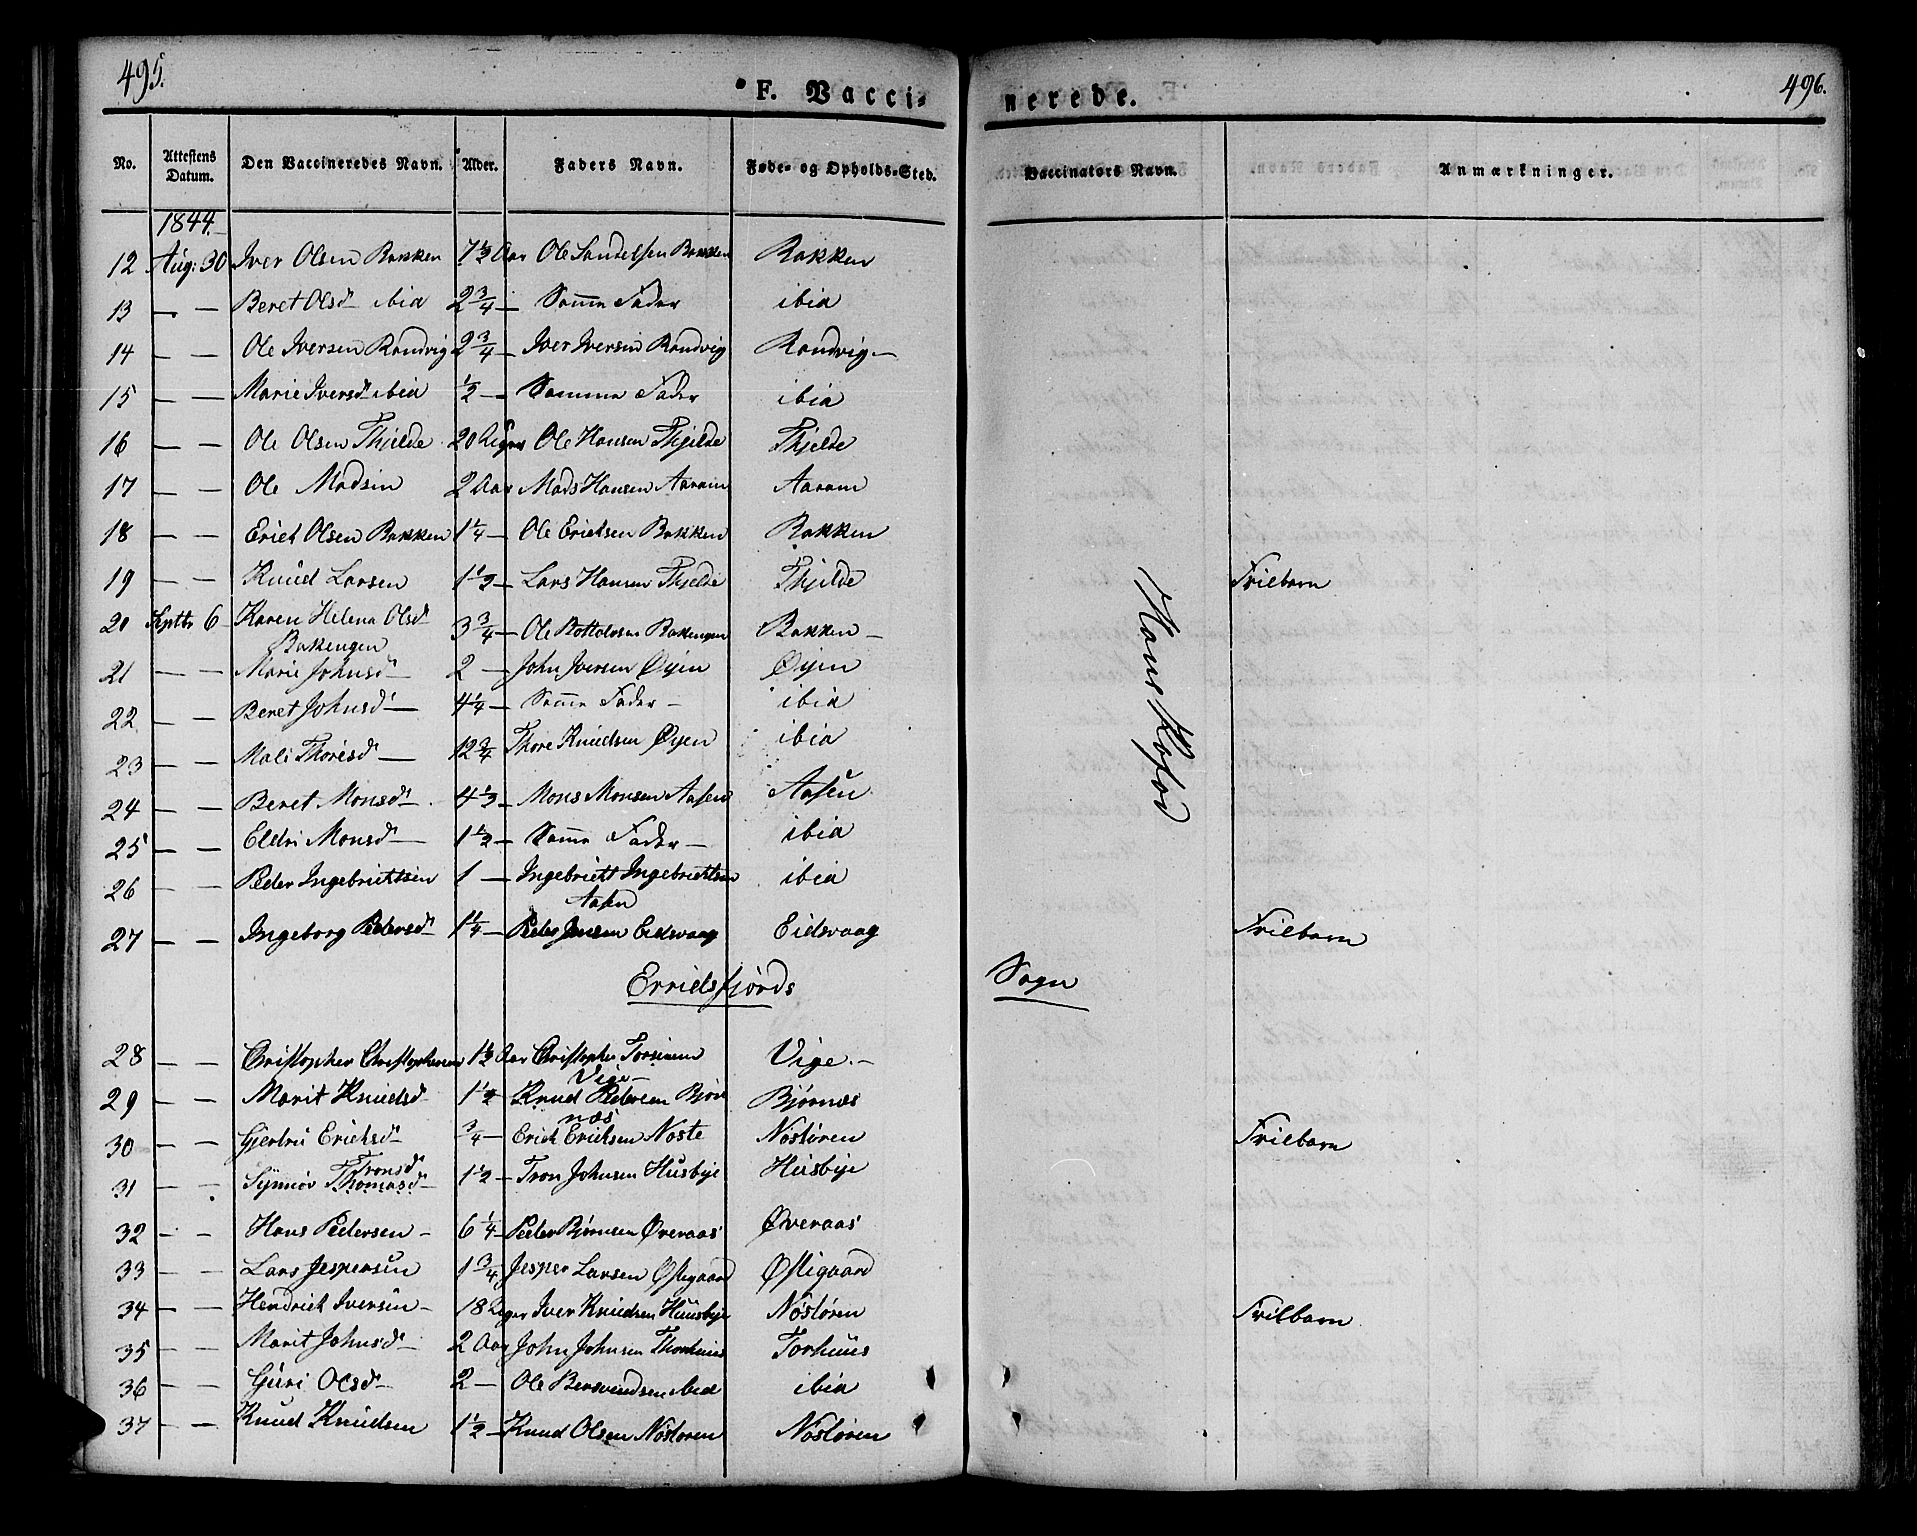 495.
F. Vacci-
nerede.
496.
No. Attestens Datum. Den Vaccineredes Navn. Alder. Faders Navn. Føde- og Opholds-Sted. Vaccinators Navn. Anmærkninger.
1844.
12 Aug: 30 Iver Olsen Bakken 7 1/3 Aar Ole Bakken Bakken
13 — — Beret Olsd ibid 2 3/4 — Samme Fader ibid
14 — — Ole Iversen Randvig 2 3/4 — Iver Iversen Randvig Randvig —
15 — — Marie Iversd ibid 1/2 — Samme Fader ibid
16 — — Ole Olsen Thjelde 20 Uger Ole Hansen Thjelde Thjelde
17 — — Ole Madsen 2 Aar Mads Hansen Aaram Aaram
18 — — Erick Olsen Bakken 1 1/4 — Ole Ericksen Bakken Bakken
19 — — Knud Larsen 1 1/2 — Lars Hansen Thjelde Thjelde Friebarn
20 Septbr 6 Karen Helena Olsd 3 3/4 — Ole Bakengen Bakken —
Bakengen
21 — — Marie Johnsd 2 — John Iversen Øyen Øyen
22 — — Beret Johnsd — 4 1/4 — Samme Fader — ibid
23 — — Mali Thoresd — 12 3/4 Thore Knudsen Øyen ibid
24 — — Beret Monsd — 4 1/3 — Mons Monsen Aasen Aasen
25 — — Eldri Monsd — 1 1/2 — Samme Fader — ibid
26 — — Peder Ingebrictsen 1 — Ingebrict Ingebrictsen ibid
Aasen
27 — — Ingeborg Pedersd 1 1/4 — Peder Jensen Eidsvaag Eidsvaag Friebarn
Hans Kofod
Erridsfjords Sogn
28 — — Christopher Christophersen 1 1/2 Aar Christopher Vige. —
Vige —
29 — — Marit Knudsd 1 1/2 Knud Pedersen Bjør Bjørnæs
næs
30 — — Gjertru Ericksd — 3/4 — Erick Ericksen Nøste Nøstøren Friebarn
Tronsd
31 — — Synnøv Thomasd — 1 1/2 — Tron Johnsen Husbye Husbye
32 — — Hans Pedersen — 6 1/4 — Peder Bjørnsen Øveraas Øveraas
33 — — Lars Jespersen 1 3/4 Jesper Larsen Østigaard Østigaard
34 — — Hendrick Iversen — 18 Uger Iver Knudsen Huusbye Nøstøren Friebarn
35 — — Marit Johnsd — 2 Aar John Johnsen Thorhuus Torhuus
36 — — Guri Olsd — 2 — Ole Bersvendsen ibid ibid
37 — — Knud Knudsen 1 1/2 — Knud Olsen Nøstøren Nøstøren